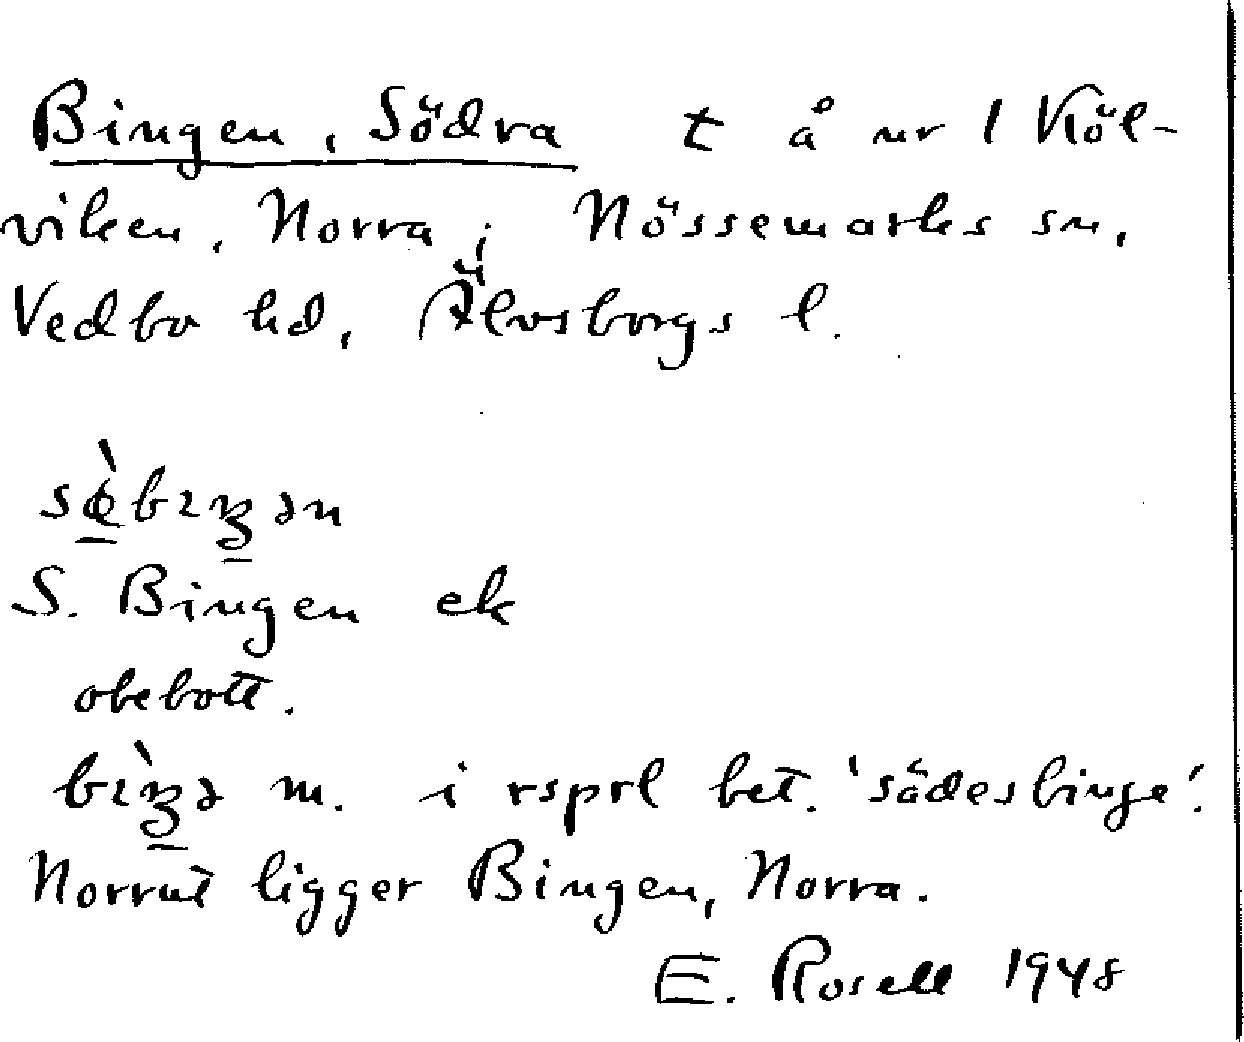 Bingen, Södra t å nr 1 Köl-
viken, Norra i Nössemarks sn,
Vedbo hd, Älvsborgs l.
sø̀bɪŋən
S. Bingen ek
obebott.
bɪ̀ŋə m. i rsprl bet. 'sädesbinge'.
Norrut ligger Bingen, Norra.
E. Rosell 1948